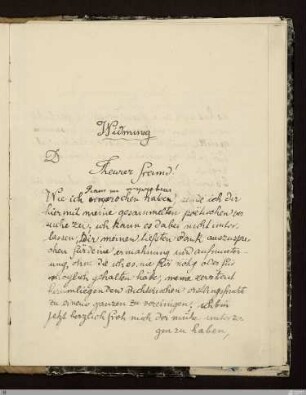 Widmung
D
Theurer Freund!
Wie ich versprochen haben, sende ich dir
hiermit meine gesammelten poetischen ver
suche zu, ich kann es dabei nicht unter
lassen, Dir meinen tiefsten dank auszuspre
chen für deine ermahnung und aufmunter
ung, ohne die ich es nie für nötig oder für
möglich gehalten habe, meine zerstreut
herumliegenden dichterischen
zu einem ganzen zu vereinigen; ich bin
jetzt herzlich froh mich der mühe unterzo
gen zu haben,